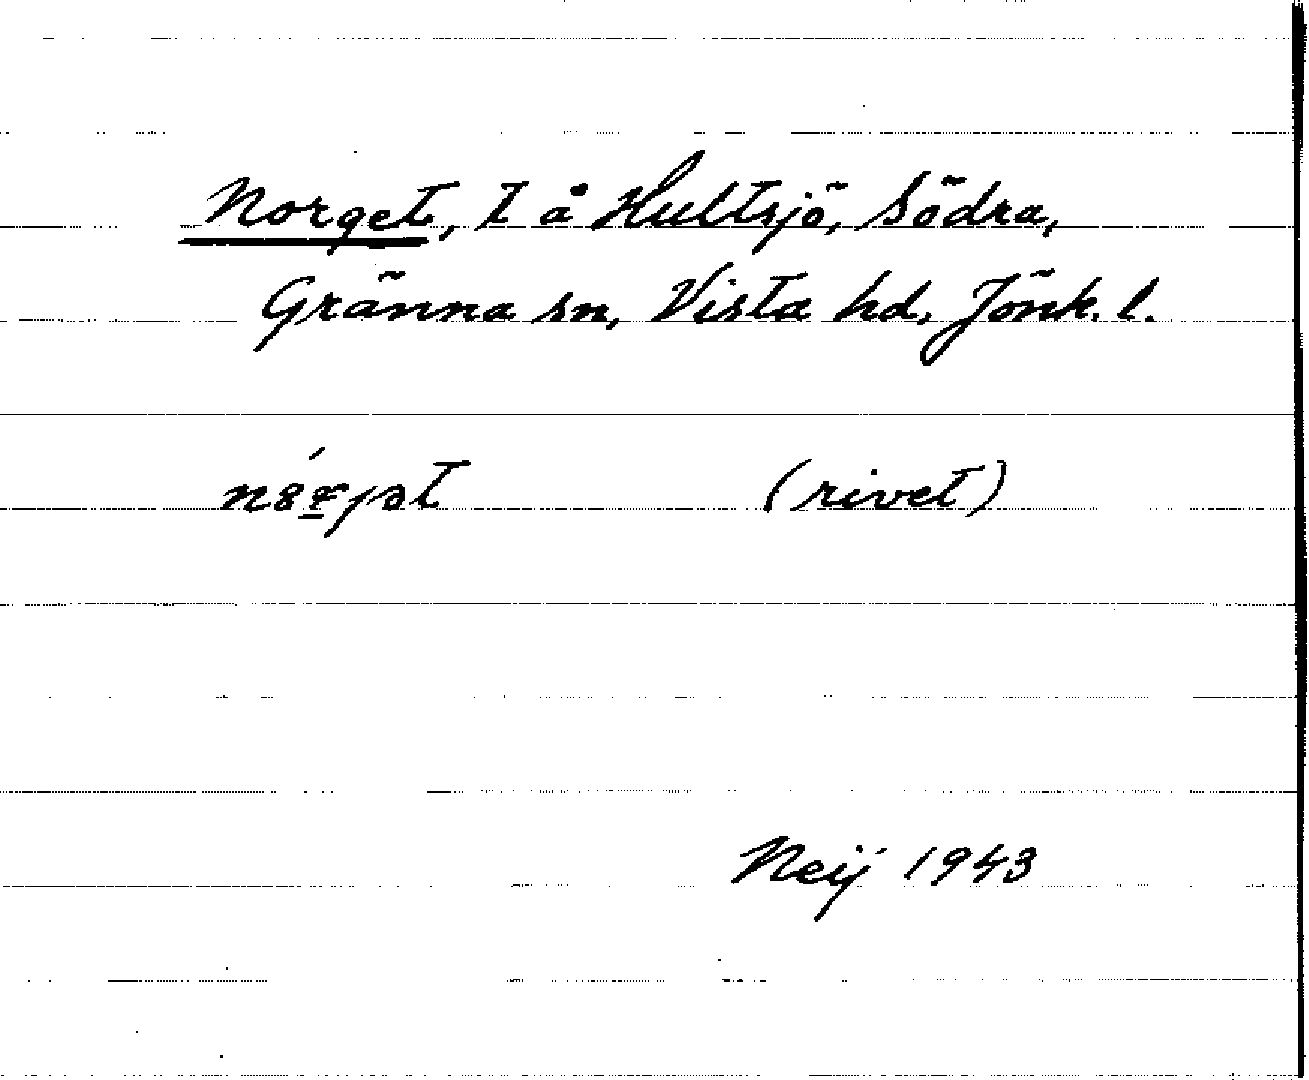 Norget, T å Hultsjö, Södra,
Gränna sn, Vista hd, Jönk. l.
(rivet)
Neij 1943